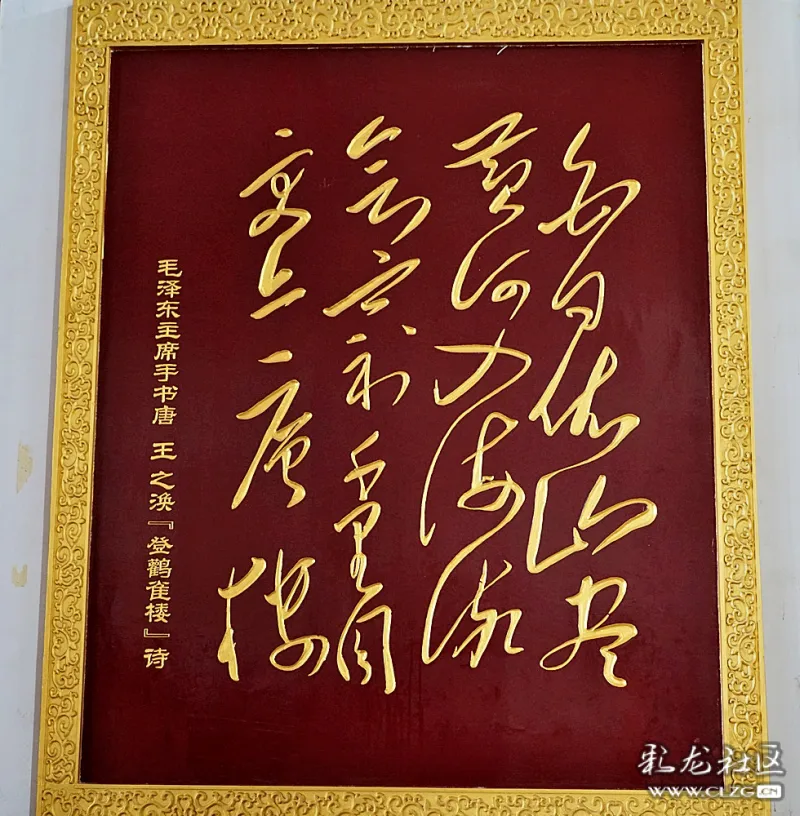 白日依山尽
黄河入海流
欲穷千里目
更上一层楼
毛泽东主席手书唐 王之涣『登鹳雀楼』诗
彩龙社区
WWW.CLZG.CN